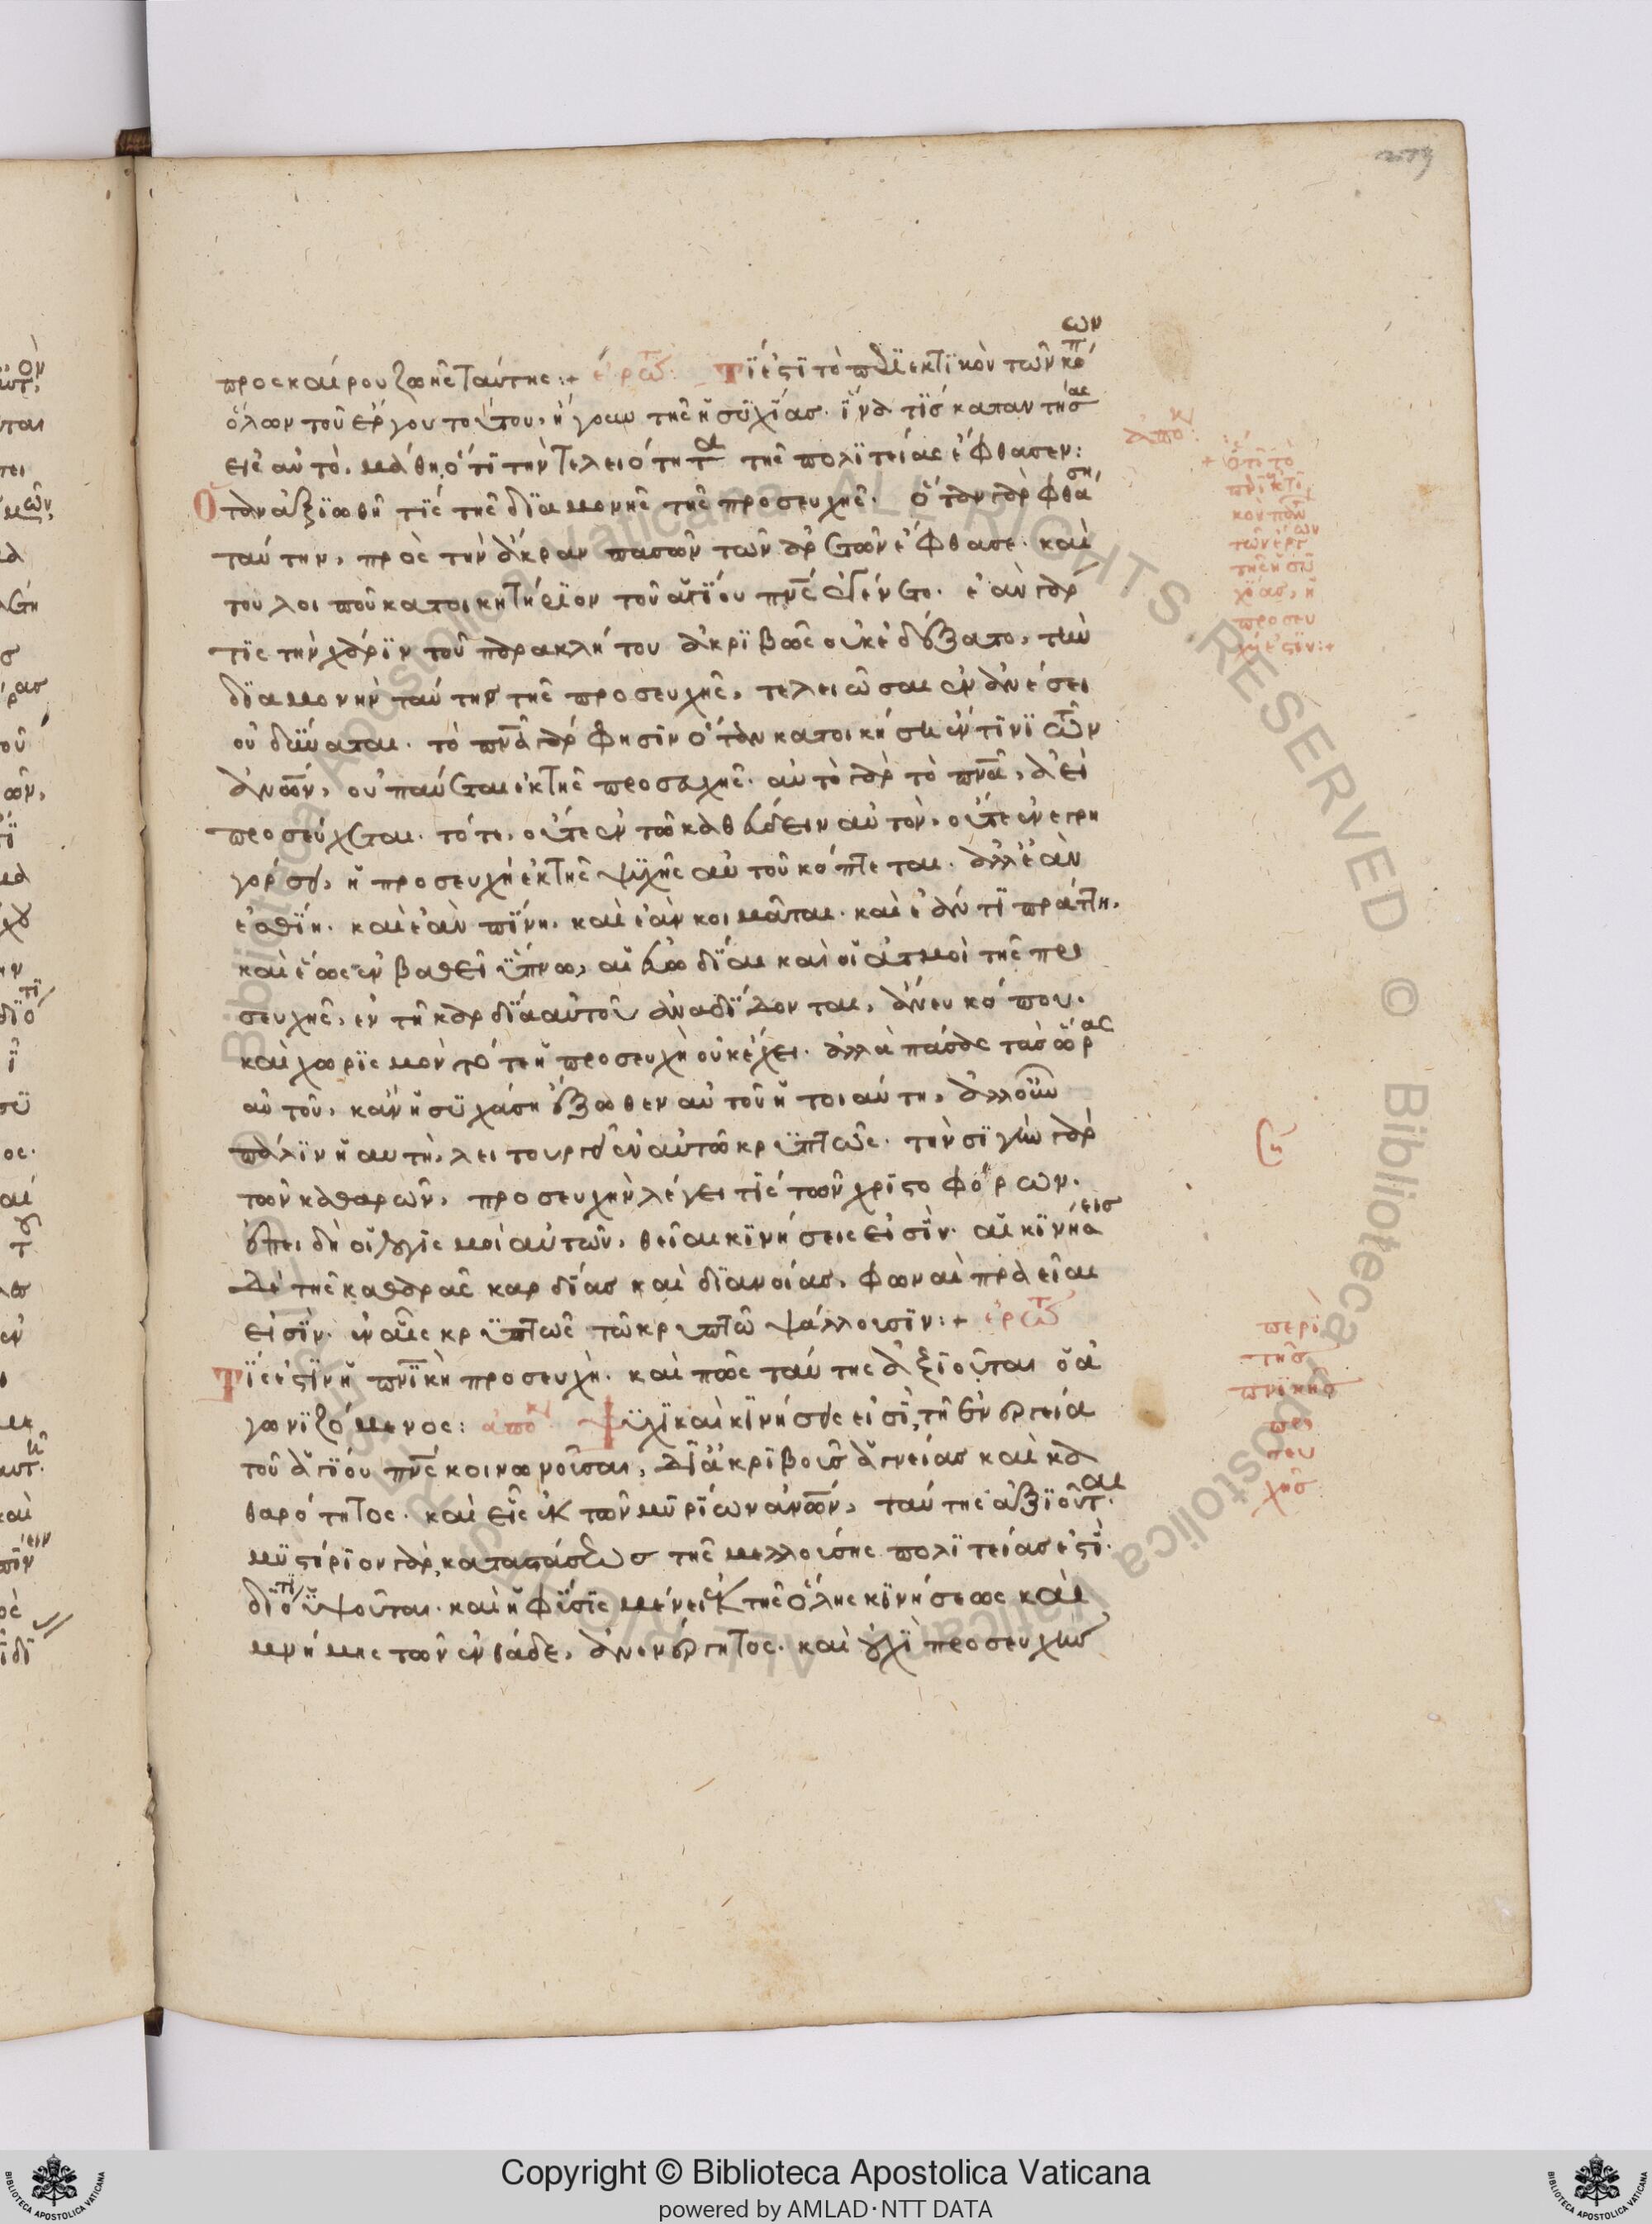 προσκαίρου ζωῆς ταύτης:+ ἐρώτ: Τί ἐστι τὸ περιεκτικὸν τῶν κόπων
ὅλων τοῦ ἔργου τούτου, ἤγουν τῆς ἡσυχίας. ἵνα τίς καταντήσας
εἰς αὐτὸ, μάθη ὅτι τὴν τελειότητα τῆς πολιτείας ἔφθασεν:
Ὅταν ἀξιωθῆ τίς τῆς διαμονῆς τῆς προσευχῆς. ὅταν γὰρ φθάση
ταύτην, πρὸς τὴν ἄκραν πασῶν τῶν ἀρετῶν ἔφθασε. καὶ
του λοιποῦ κατοικητήριον τοῦ ἁγίου πνς ἐγένετο. ἐὰν γάρ
τις τὴν χάριν τοῦ παρακλήτου ἀκριβῶς οὐκ ἐδέξατο, τὴν
διαμονὴν ταύτην τῆς προσευχῆς, τελειῶσαι ἐν ἀνέσει
οὐ δύναται. τὸ πνα γάρ φησιν ὅταν κατοικήση ἔν τινι τῶν
ἀνων, οὐ παύεται ἐκ τῆς προσευχῆς. αὐτὸ γὰρ τὸ πνα, ἀεὶ
προσεύχεται. τότε, οὔτε ἐν τῶ καθεύδειν αὐτὸν, οὔτε ἐν ἐγρη
γόρσει, ἡ προσευχὴ ἐκ τῆς ψυχῆς αὐτοῦ κόπτεται. ἀλλ' ἐὰν
ἐσθίη. καὶ ἐὰν πίνη. καὶ ἐὰν κοιμᾶται. καὶ ἐάν τι πράττη.
καὶ ἕως ἐν βαθεῖ ὕπνω, αἱ εὐωδίαι καὶ οἱ ἀτμοὶ τῆς προ
σευχῆς, ἐν τῆ καρδία αὐτοῦ ἀναδίδονται, ἄνευ κόπου.
καὶ χωρισμὸν τότε ἡ προσευχὴ οὐκ ἔχει. ἀλλὰ πάσας τὰς ὥρας
αὐτοῦ, κἂν ἡσυχάση ἔξωθεν αὐτοῦ ἡ τοιαύτη, ἀλλ' οὖν
πάλιν ἡ αυτὴ, λειτουργεῖ ἐν αὐτῶ κρυπτῶς. τὴν σιγὴν γὰρ
τῶν καθαρῶν, προσευχὴν λέγει τίς τῶν χριστοφόρων.
ἐπειδὴ οἱ λογισμοὶ αὐτῶν, θεῖαι κινήσεις εἰσίν. αἱ κινήσεις
δὲ τῆς καθαρᾶς καρδίας καὶ διανοίας, φωναὶ πραεῖαι
εἰσίν. ἐν αἷς κρυπτῶς τῶ κρυπτῶ ψάλλουσιν:+ ἐρώτ
Τί ἐστιν ἡ πνικὴ προσευχὴ. καὶ πῶς ταύτης ἀξιοῦται ὁ ἀ
γωνιζόμενος: ἀποκ Ψυχικαὶ κινήσεις εἰσὶ, τῆ ἐνεργεία
τοῦ ἁγίου πνς κοινωνοῦσαι, δι' ἀκριβοῦς ἁγνείας καὶ κα
θαρότητος. καὶ εἷς ἐκ τῶν μυρίων ἀνων, ταύτης ἀξιοῦται.
μυστήριον γάρ, καταστάσεως τῆς μελλούσης πολιτείας ἐστί.
διότι ὑψοῦται. καὶ ἡ φύσις μένει ἐκ τῆς ὅλης κινήσεως καὶ
μνήμης τῶν ἐνθάδε, ἀνενέργητος. καὶ οὐχὶ προσευχὴν
ἀποκ:
+ ὅτι τὸ
περιεκτι
κον πάντων
τῶν ἔργων
τῆς ἡσυ
χίας, ἡ
προσευ
χή ἐστιν:+
περὶ
τῆς
πνικῆς
προ
σευ
χῆς
Copyright © Biblioteca Apostolica Vaticana
powered by AMLAD·NTT DATA